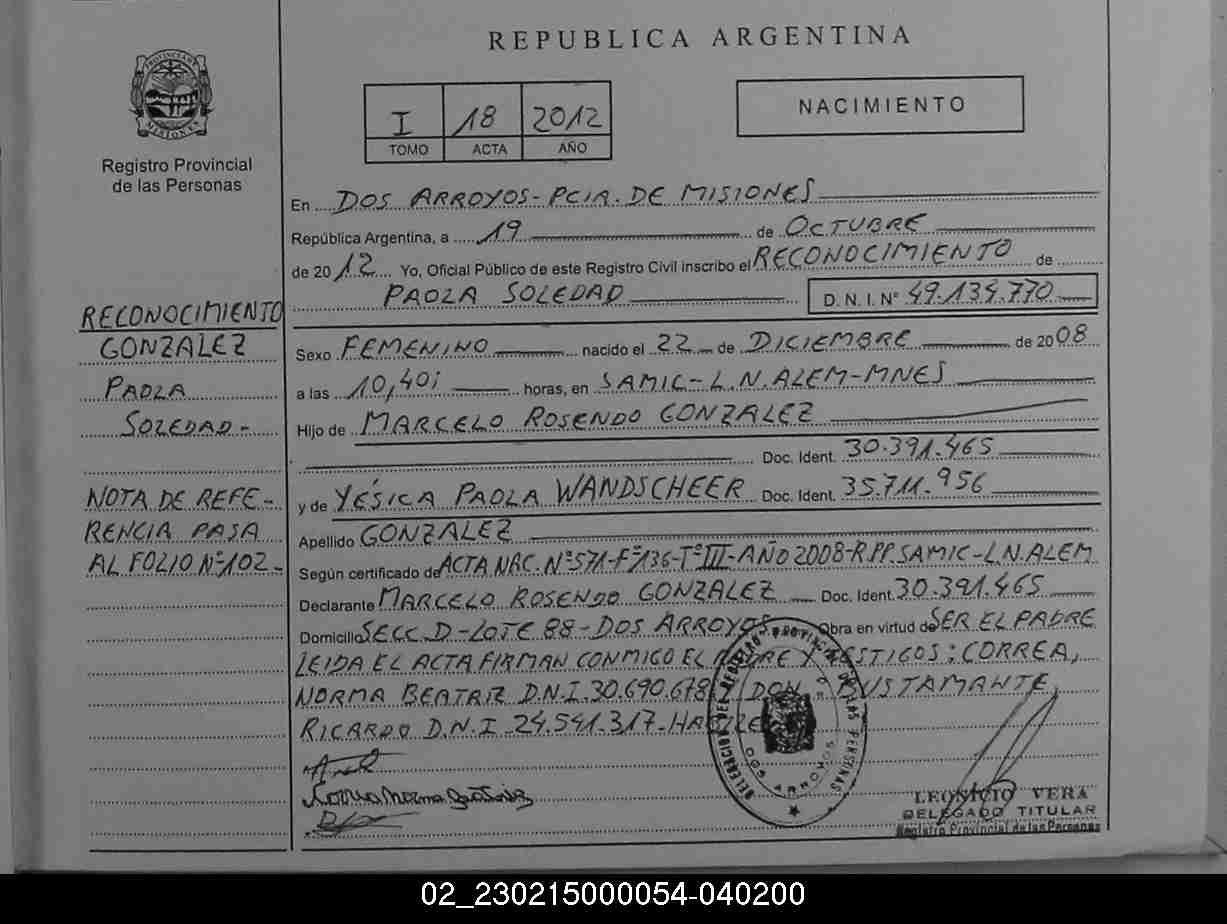 REPUBLICA ARGENTINA
PROVINCIA DE
MISIONES
Registro Provincial
de las Personas
I 18 2012
TOMO ACTA AÑO
NACIMIENTO
En DOS ARROYOS-PCIA. DE MISIONES
República Argentina, a 19 de OCTUBRE
de 2012 Yo, Oficial Público de este Registro Civil inscribo el RECONOCIMIENTO de
PAOLA SOLEDAD D. N. I. Nº 49.134.770
RECONOCIMIENTO
GONZALEZ
PAOLA
SOLEDAD-
NOTA DE REFE-
RENCIA PASA
AL FOLIO Nº102-
Sexo FEMENINO nacido el 22 de DICIEMBRE de 2008
a las 10,40i horas, en SAMIC-L.N.ALEM-MNES
Hijo de MARCELO ROSENDO GONZALEZ
Doc. Ident. 30.391.465
y de YÉSICA PAOLA WANDSCHEER Doc. Ident. 35.711.956
Apellido GONZALEZ
Según certificado de ACTA NAC. Nº571-Fº136-Tº III-AÑO 2008-R.PP.SAMIC-L.N.ALEM
Declarante MARCELO ROSENDO GONZALEZ Doc. Ident. 30.391.465
Domicilio SECC. D-LOTE 88-DOS ARROYOS Obra en virtud de SER EL PADRE
LEIDA EL ACTA FIRMAN CONMIGO EL PADRE Y TESTIGOS: CORREA,
NORMA BEATRIZ D.N.I. 30.690.678 Y DON BUSTAMANTE,
RICARDO D.N.I. 24.541.317-
DELEGACION DEL REGISTRO PROVINCIAL DE LAS PERSONAS
DOS ARROYOS
LEONICIO VERA
DELEGADO TITULAR
Registro Provincial de las Personas
02_230215000054-040200